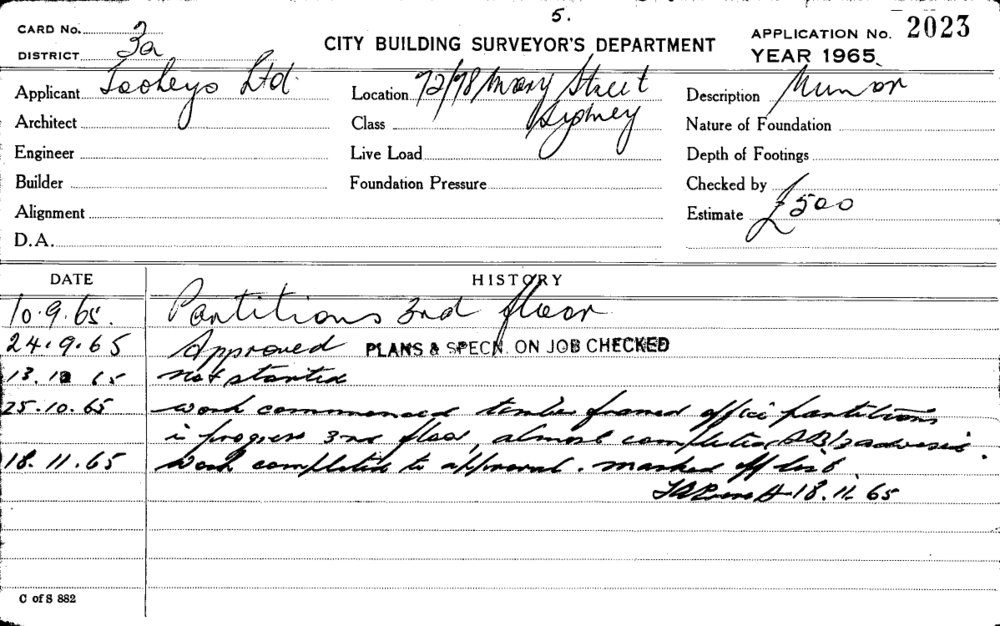 5.
CARD No.
DISTRICT 3a
CITY BUILDING SURVEYOR'S DEPARTMENT
APPLICATION No. 2023
YEAR 1965
Applicant Tooheys Ltd.
Location 72/78 Mary Street
Sydney
Description
Architect
Class
Nature of Foundation
Engineer
Live Load
Depth of Footings
Builder
Foundation Pressure
Checked by
Alignment
Estimate £500
D.A.
DATE HISTORY
10.9.65. Partitions 3rd floor
24.9.65 Approved PLANS & SPECN. ON JOB CHECKED
13.10 65 not started
25.10.65 work commenced timber framed office partitions
in progress 3rd floor, almost completed
18.11.65 work completed to approval. marked off list
18.11.65
C of S 882